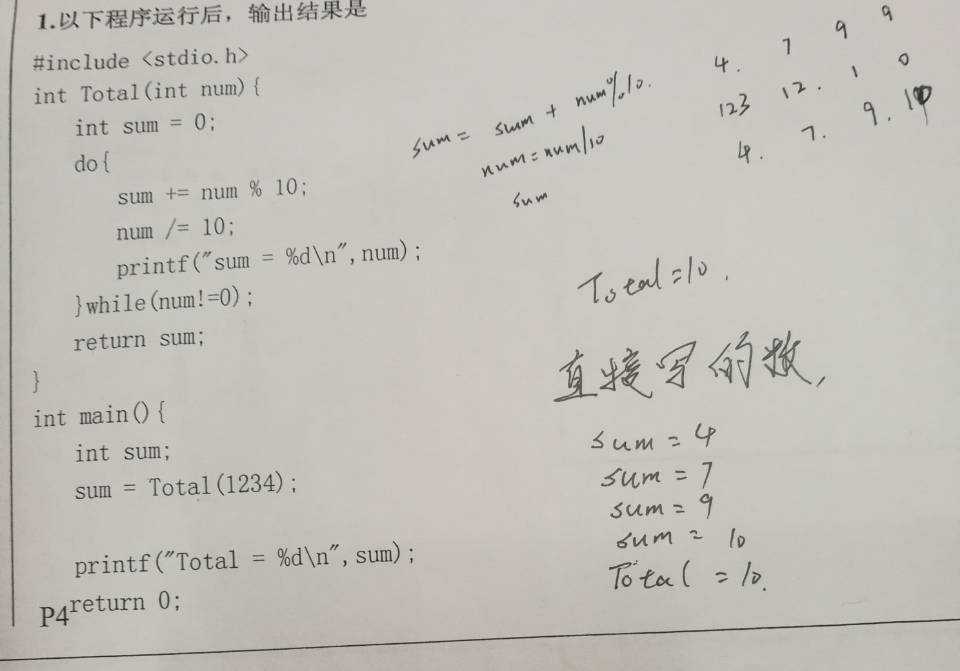 1.以下程序运行后，输出结果是
#include <stdio.h>
int Total(int num){
int sum = 0;
do{
sum += num % 10;
num /= 10;
printf("sum = %d\n",num);
}while(num!=0);
return sum;
}
int main(){
int sum;
sum = Total(1234);
printf("Total = %d\n",sum);
return 0;
P4
sum = sum + num%10.
num=num/10
sum
4. 7 9 9
123 12. 1 0
4. 7. 9. 10
Total=10.
直接写的数,
sum = 4
sum = 7
sum = 9
sum = 10
Total = 10.